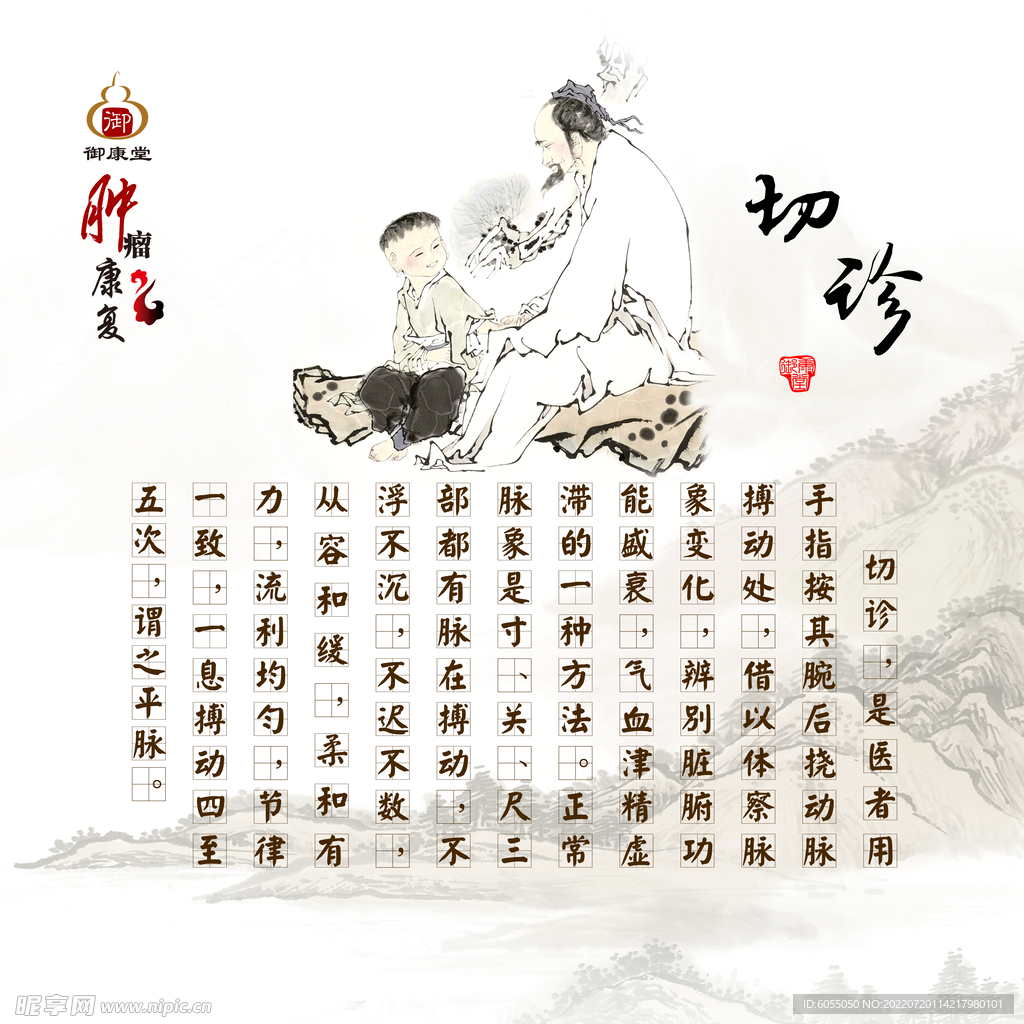 御
御康堂
肿瘤
康复
切诊
御康堂
切诊，是医者用
手指按其腕后挠动脉
搏动处，借以体察脉
象变化，辨别脏腑功
能盛衰，气血津精虚
滞的一种方法。正常
脉象是寸、关、尺三
部都有脉在搏动，不
浮不沉，不迟不数，
从容和缓，柔和有
力，流利均匀，节律
一致，一息搏动四至
五次，谓之平脉。
昵享网 www.nipic.cn
ID:6055050 NO:20220720114217980101